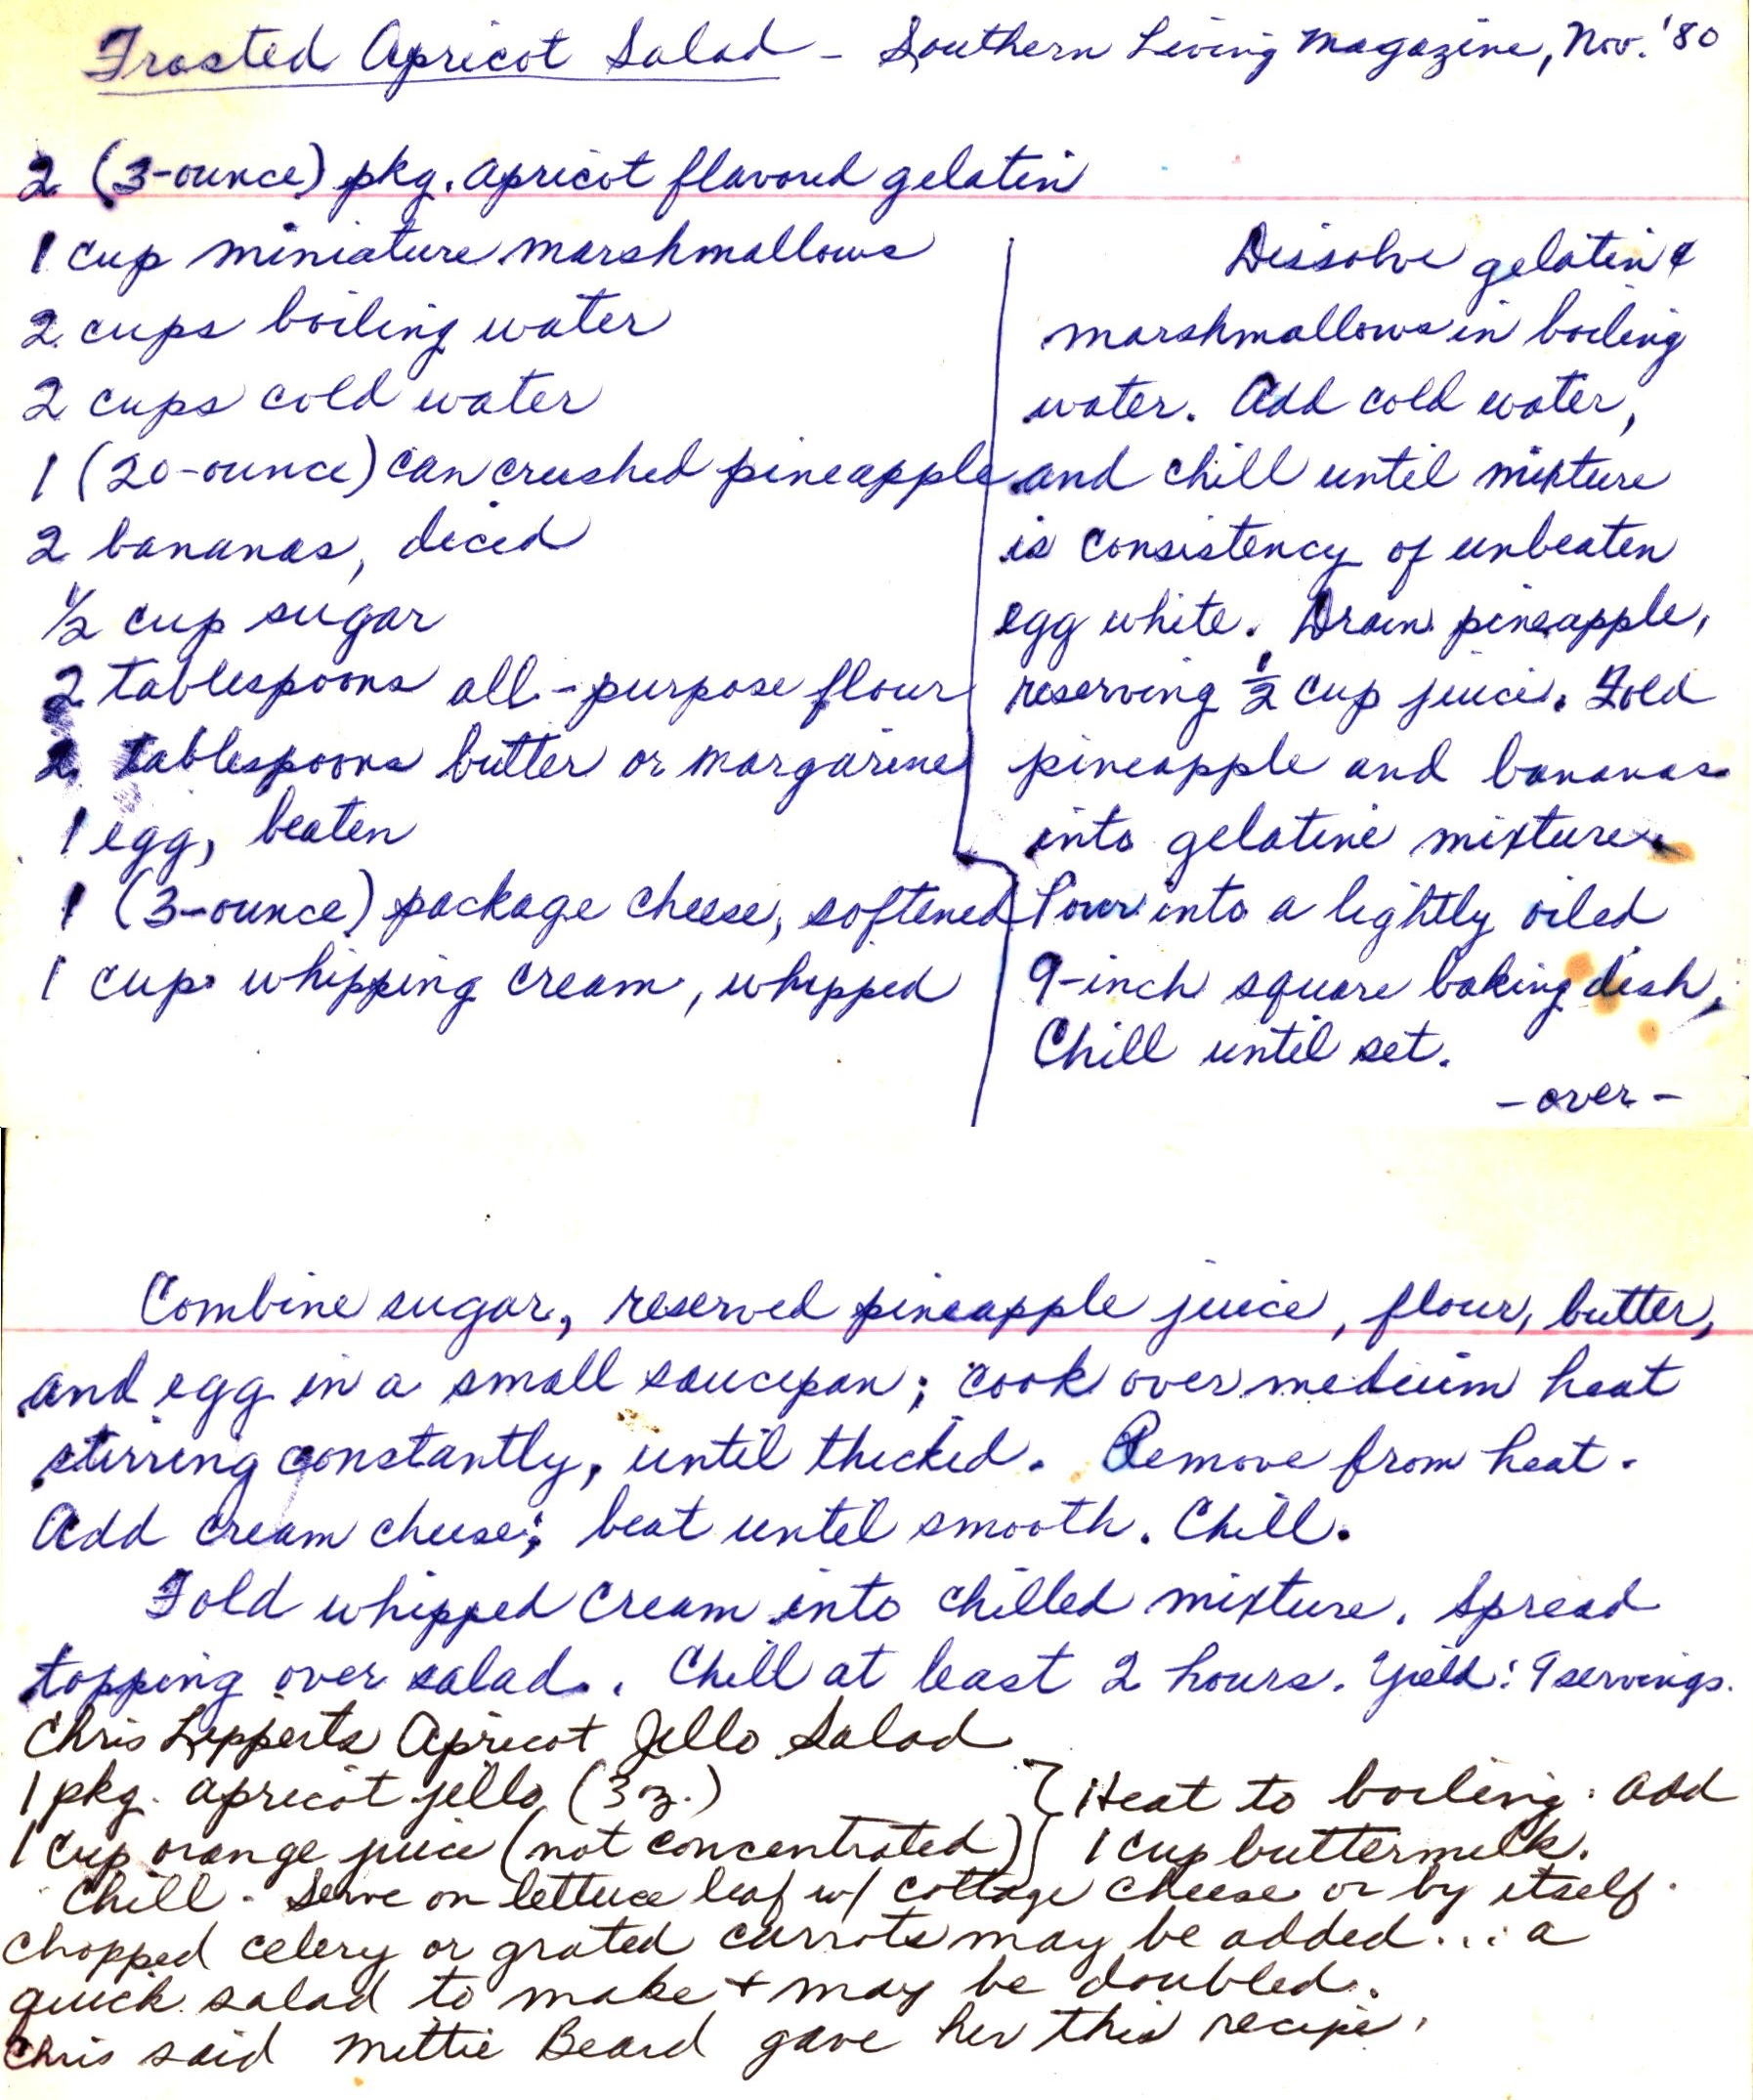 Frosted Apricot Salad - Southern Living Magazine, Nov. '80
2 (3-ounce) pkg. apricot flavored gelatin
1 cup miniature marshmallows
2 cups boiling water
2 cups cold water
1 (20-ounce) can crushed pineapple
2 bananas, diced
1/2 cup sugar
2 tablespoons all-purpose flour
2 tablespoons butter or margarine
1 egg, beaten
1 (3-ounce) package cheese, softened
1 cup whipping cream, whipped
Dissolve gelatin &
marshmallows in boiling
water. Add cold water,
and chill until mixture
is consistency of unbeaten
egg white. Drain pineapple,
reserving 1/2 cup juice. Fold
pineapple and bananas
into gelatine mixture.
Pour into a lightly oiled
9-inch square baking dish,
Chill until set.
- over -
Combine sugar, reserved pineapple juice, flour, butter,
and egg in a small saucepan; cook over medium heat
stirring constantly, until thicked. Remove from heat.
Add cream cheese; beat until smooth. Chill.
Fold whipped cream into chilled mixture. Spread
topping over salad. Chill at least 2 hours. Yield: 9 servings.
Chris Lipperts Apricot Jello Salad
1 pkg. apricot jello (3 oz.) } Heat to boiling. Add
1 cup orange juice (not concentrated) } 1 cup buttermilk.
Chill. Serve on lettuce leaf w/ cottage cheese or by itself.
Chopped celery or grated carrots may be added... a
quick salad to make + may be doubled.
Chris said Mettie Beard gave her this recipe.